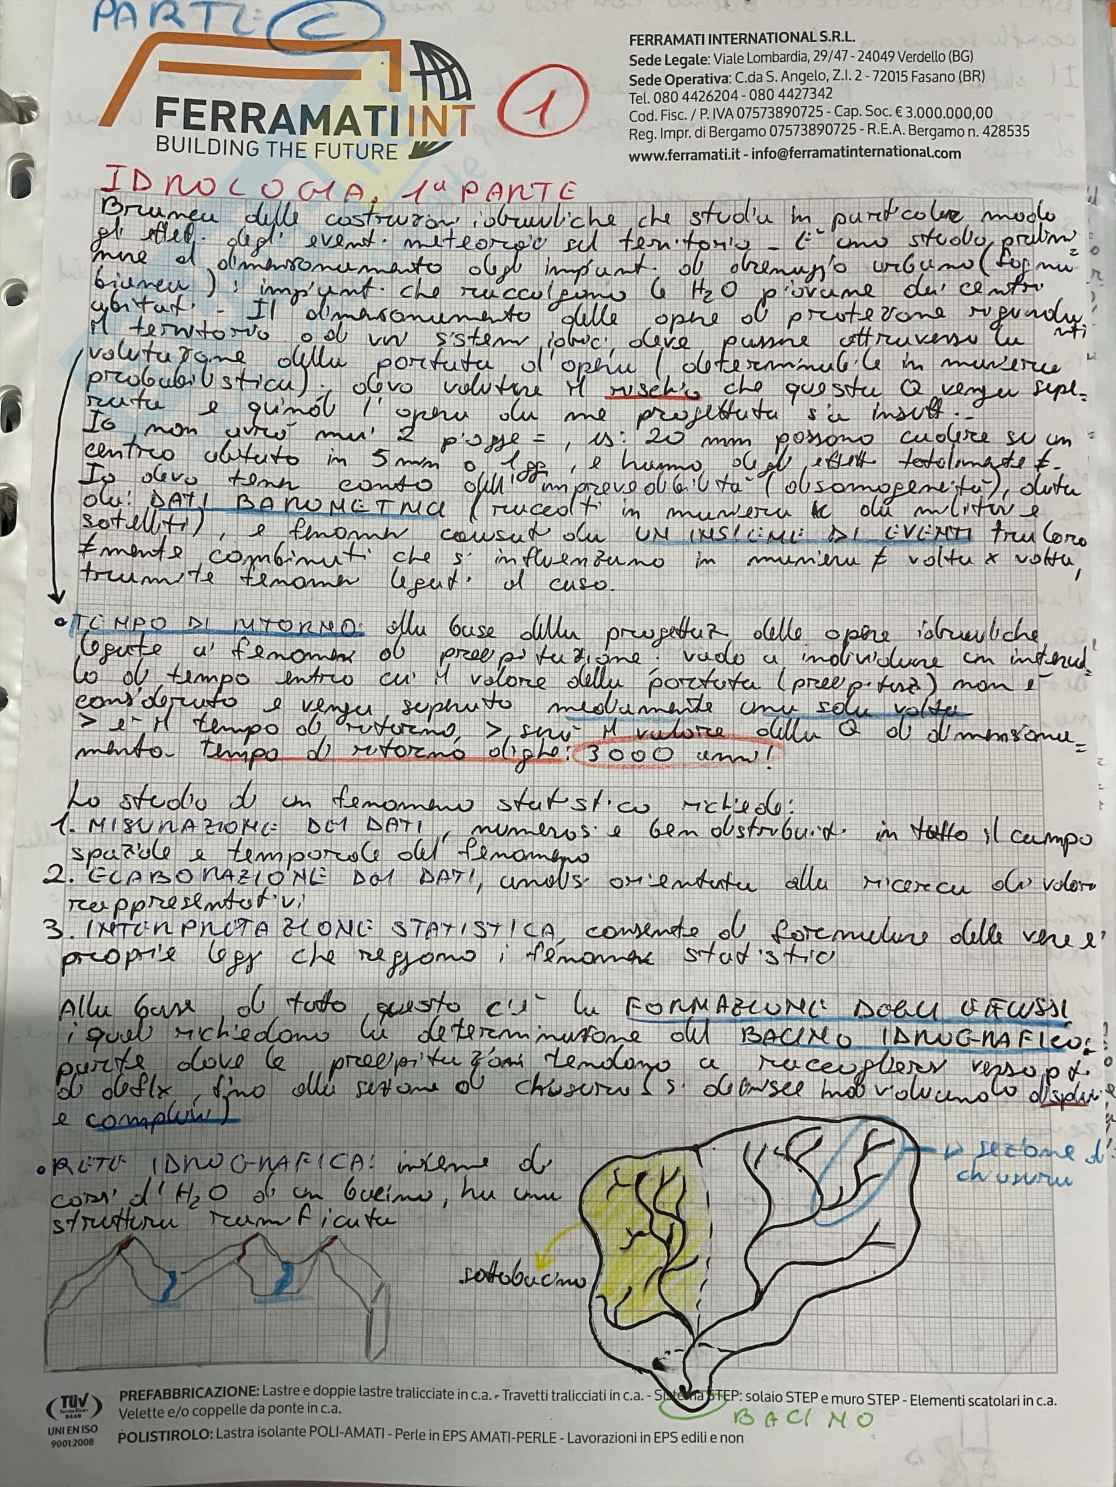 PARTE: C
1
FERRAMATI INT
BUILDING THE FUTURE
FERRAMATI INTERNATIONAL S.R.L.
Sede Legale: Viale Lombardia, 29/47 - 24049 Verdello (BG)
Sede Operativa: C.da S. Angelo, Z.I. 2 - 72015 Fasano (BR)
Tel. 080 4426204 - 080 4427342
Cod. Fisc. / P. IVA 07573890725 - Cap. Soc. € 3.000.000,00
Reg. Impr. di Bergamo 07573890725 - R.E.A. Bergamo n. 428535
www.ferramati.it - info@ferramatinternational.com
IDROLOGIA, 1ª PARTE
Branca delle costruzioni idrauliche che studia in particolare modo
gli effetti degli eventi meteorici sul territorio - È uno studio prelim=
inare al dimensionamento degli impianti di drenaggio urbano (fogna
bianca); impianti che raccolgono le H2O piovane dei centri
abitati - Il dimensionamento delle opere di protezione riguardanti
il territorio o di un sistema idrici, deve passare attraverso la
valutazione della portata d'opera (determinabile in maniera
probabilistica); devo valutare il rischio che questa Q venga supe=
rata e quindi l'opera da me progettata sia insuff.-
Io non avrò mai 2 piogge =, es: 20 mm possono cadere su un
centro abitato in 5 min o 1 gg, e hanno degli effetti totalmente ≠.
Io devo tener conto dell'imprevedibilità (disomogeneità), data
dai DATI BAROMETRICI (raccolti in maniera da militari e
satelliti), e fenomeni causati da UN INSIEME DI EVENTI tra loro
≠mente combinati che si influenzano in maniera ≠ volta x volta,
tramite fenomeni legati al caso.
• TEMPO DI RITORNO: alla base della progettaz. delle opere idrauliche
legate a fenomeni di precipitazione; vado a individuare un interval
lo di tempo entro cui il valore della portata (precipitaz) non è
considerato e venga superato mediamente una sola volta
> è il tempo di ritorno, > sarà il valore della Q di dimensiona=
mento. tempo di ritorno dighe: 3000 anni!
Lo studio di un fenomeno statistico richiede:
1. MISURAZIONE DEI DATI, numerosi e ben distribuiti in tutto il campo
spaziale e temporale del fenomeno
2. ELABORAZIONE DEI DATI, analisi orientata alla ricerca di valori
rappresentativi
3. INTERPRETAZIONE STATISTICA, consente di formulare delle vere e
proprie leggi che reggono i fenomeni statistici
Alla base di tutto questo c'è la FORMAZIONE DEGLI DEFLUSSI,
i quali richiedono la determinazione del BACINO IDROGRAFICO:
parte dove le precipitazioni tendono a raccogliersi verso pti
di deflx, fino alla sezione di chiusura (si definisce individuando displuvi
e compluvi)
• RETE IDROGRAFICA: insieme di
corsi d'H2O di un bacino, ha una
struttura ramificata
sottobacino
sezione di
chiusura
BACINO
TÜV
UNI EN ISO
9001:2008
PREFABBRICAZIONE: Lastre e doppie lastre tralicciate in c.a. - Travetti tralicciati in c.a. - Sistema STEP: solaio STEP e muro STEP - Elementi scatolari in c.a.
Velette e/o coppelle da ponte in c.a.
POLISTIROLO: Lastra isolante POLI-AMATI - Perle in EPS AMATI-PERLE - Lavorazioni in EPS edili e non